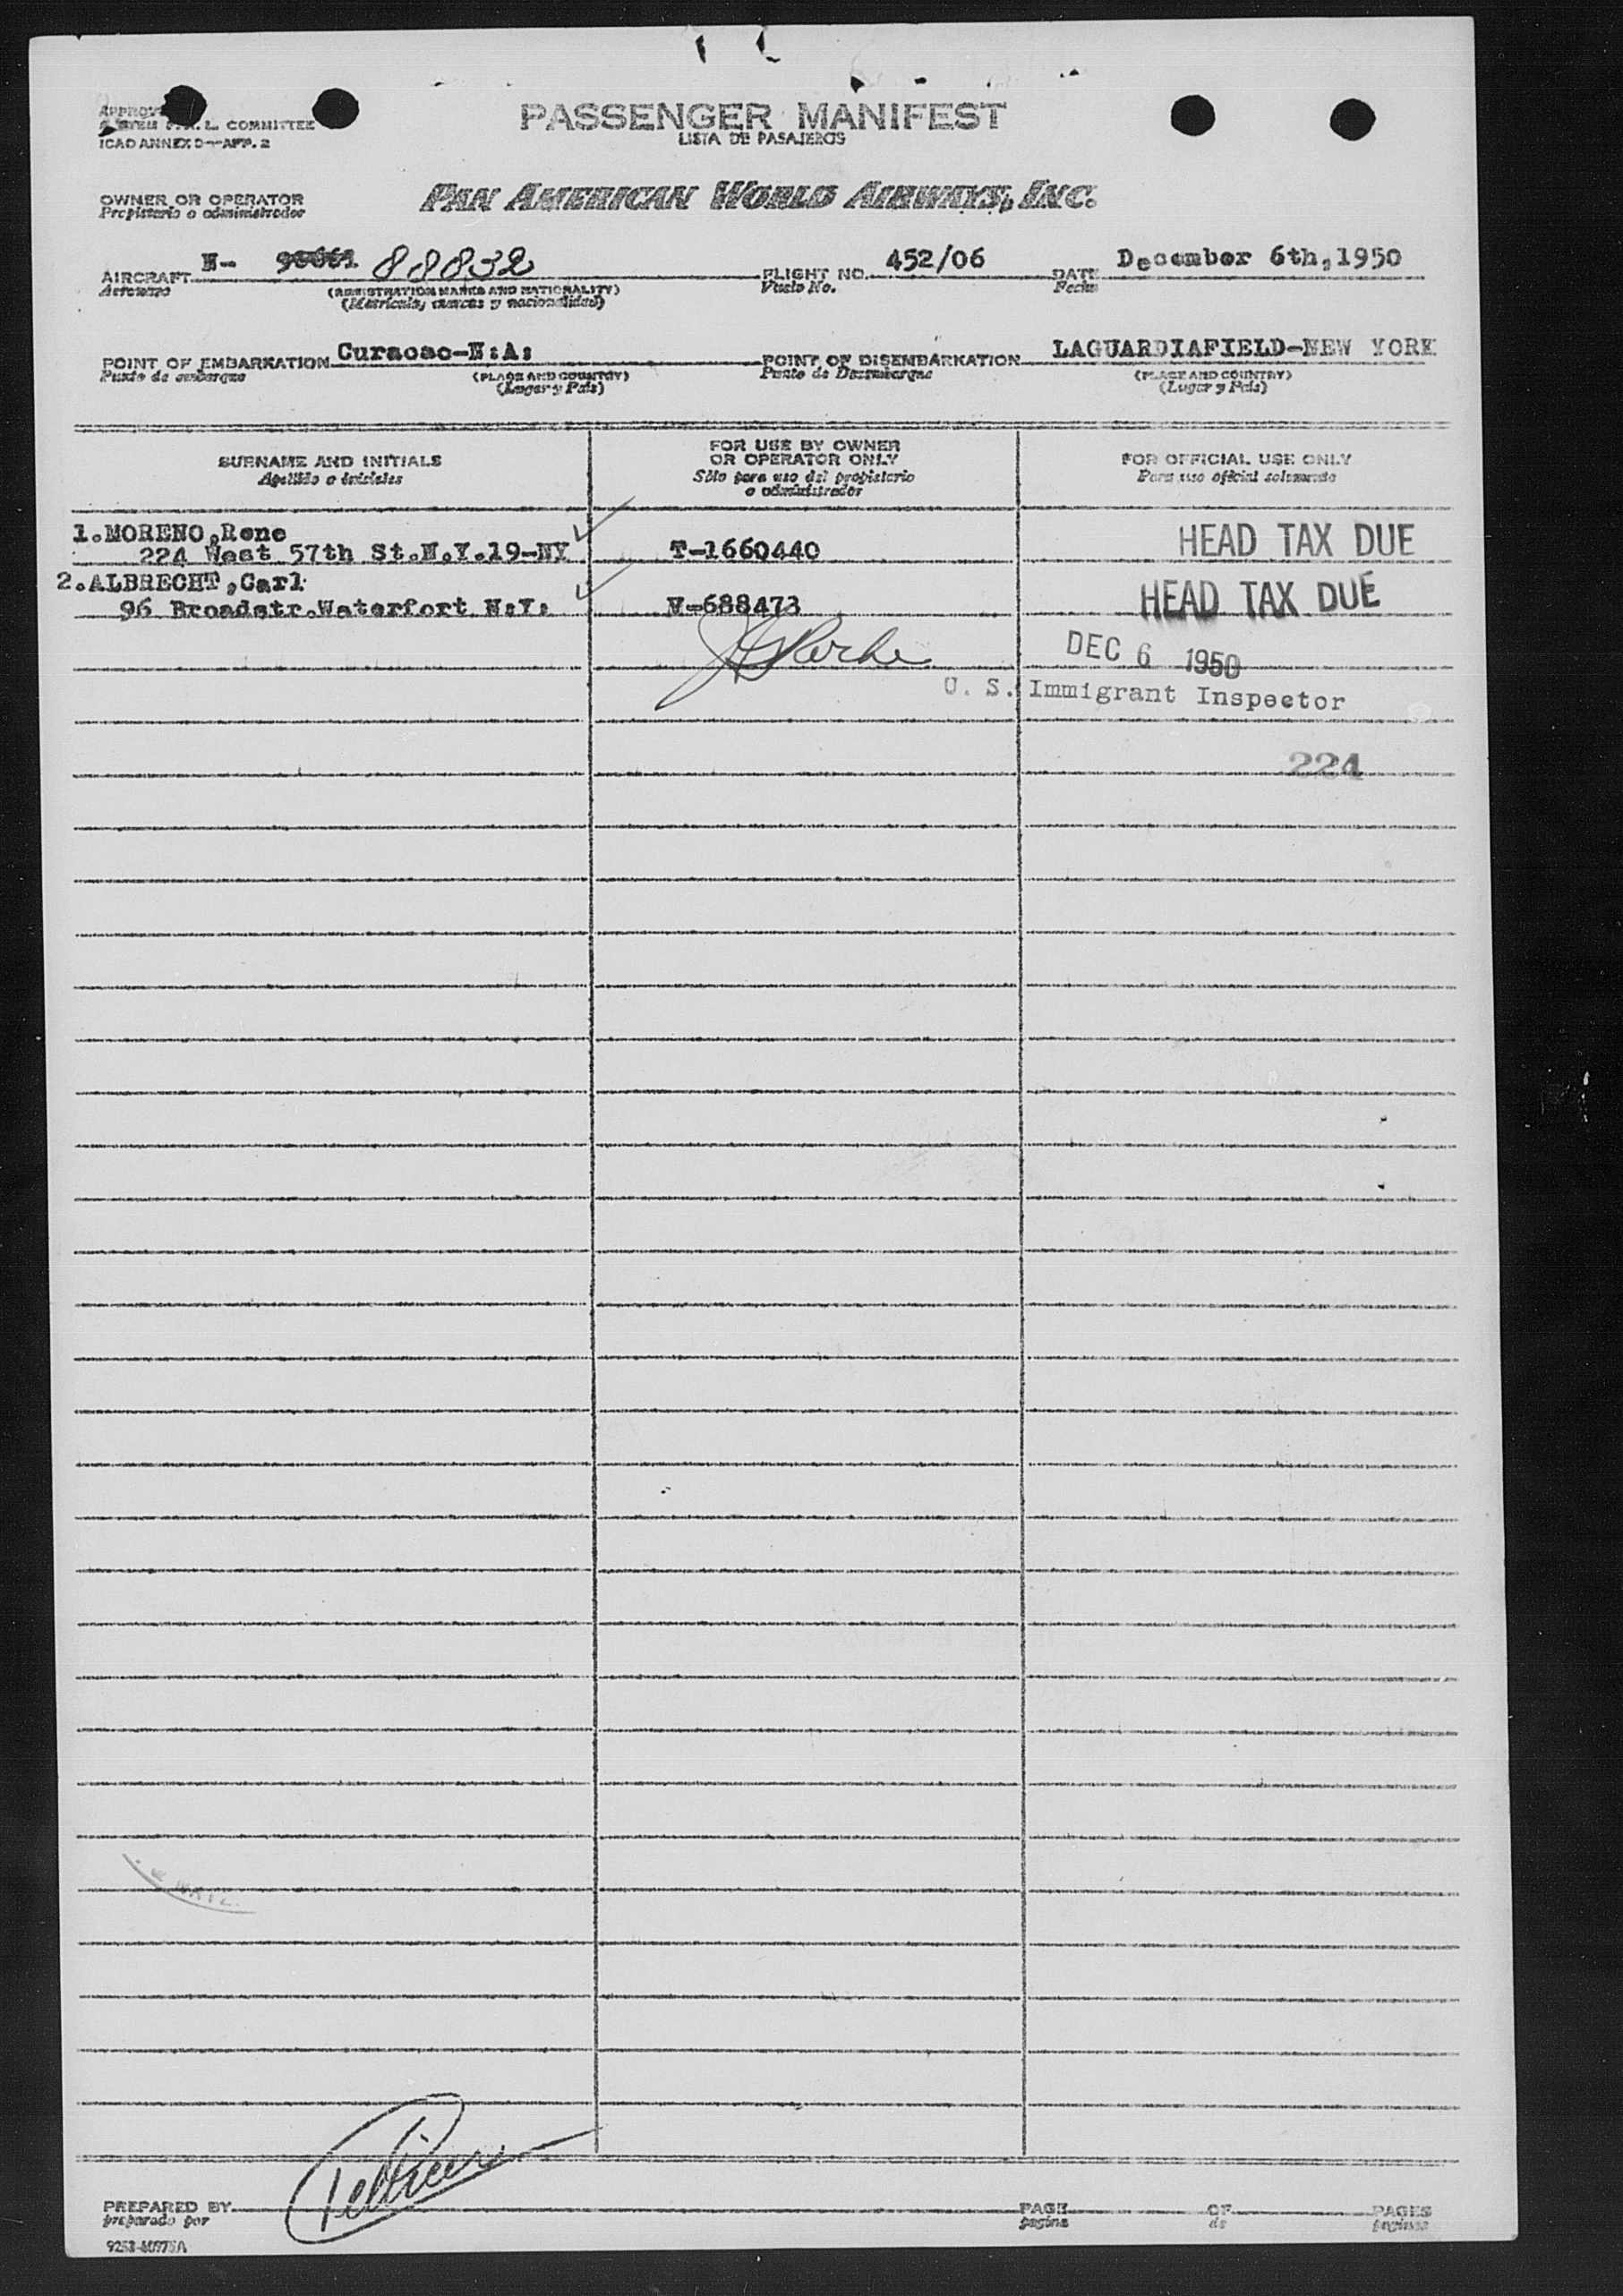 PASSENGER MANIFEST
LISTA DE PASAJEROS
COMMITTEE
ICAO ANNEX 9—APP. 2
OWNER OR OPERATOR
Propietario o administrador
PAN AMERICAN WORLD AIRWAYS, INC.
AIRCRAFT N- 88832
Aeronave
(REGISTRATION MARKS AND NATIONALITY)
(Matrícula, marcas y nacionalidad)
FLIGHT NO. 452/06
Vuelo No.
DATE December 6th,1950
Fecha
POINT OF EMBARKATION Curacao-N:A:
Punto de embarque
(PLACE AND COUNTRY)
(Lugar y País)
POINT OF DISEMBARKATION LAGUARDIAFIELD-NEW YORK
Punto de Desembarque
(PLACE AND COUNTRY)
(Lugar y País)
SURNAME AND INITIALS
Apellido e iniciales
FOR USE BY OWNER
OR OPERATOR ONLY
Sólo para uso del propietario
o administrador
FOR OFFICIAL USE ONLY
Para uso oficial solamente
1.MORENO,Rene
224 West 57th St.N.Y.19-NY T-1660440 HEAD TAX DUE
2.ALBRECHT,Carl
96 Broadstr.Waterfort N:Y: V-688473 HEAD TAX DUE
DEC 6 1950
U. S. Immigrant Inspector
224
PREPARED BY
preparado por
PAGE OF PAGES
página de páginas